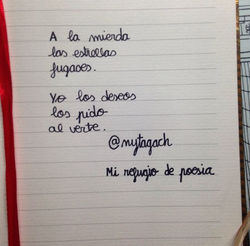 A la mierda
las estrellas
fugases.
Yo los deseos
los pido
al verte.
@nytagach
Mi refugio de poesia